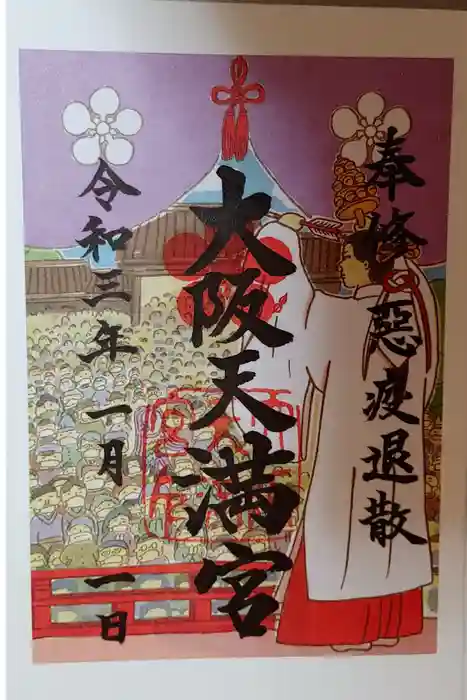 奉修 惡疫退散
大阪天満宮
令和三年 一月 一日